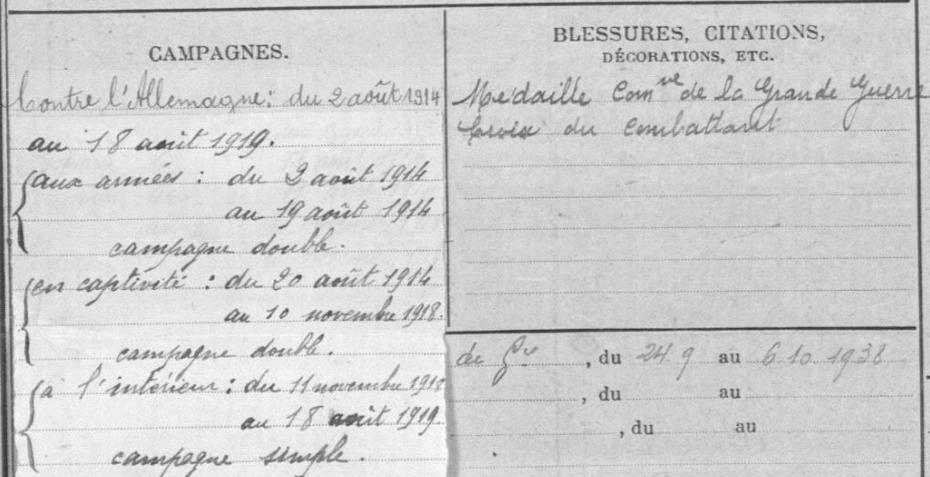 CAMPAGNES.
Contre l'Allemagne: du 2 août 1914
au 18 août 1919.
aux armées : du 2 août 1914
au 19 août 1914
campagne double.
en captivité : du 20 août 1914
au 10 novembre 1918.
campagne double.
à l'intérieur : du 11 novembre 1918
au 18 août 1919.
campagne simple.
BLESSURES, CITATIONS,
DÉCORATIONS, ETC.
Médaille Comve de la Grande Guerre
Croix du combattant
de , du 24.9 au 6.10.1938
, du au
, du au